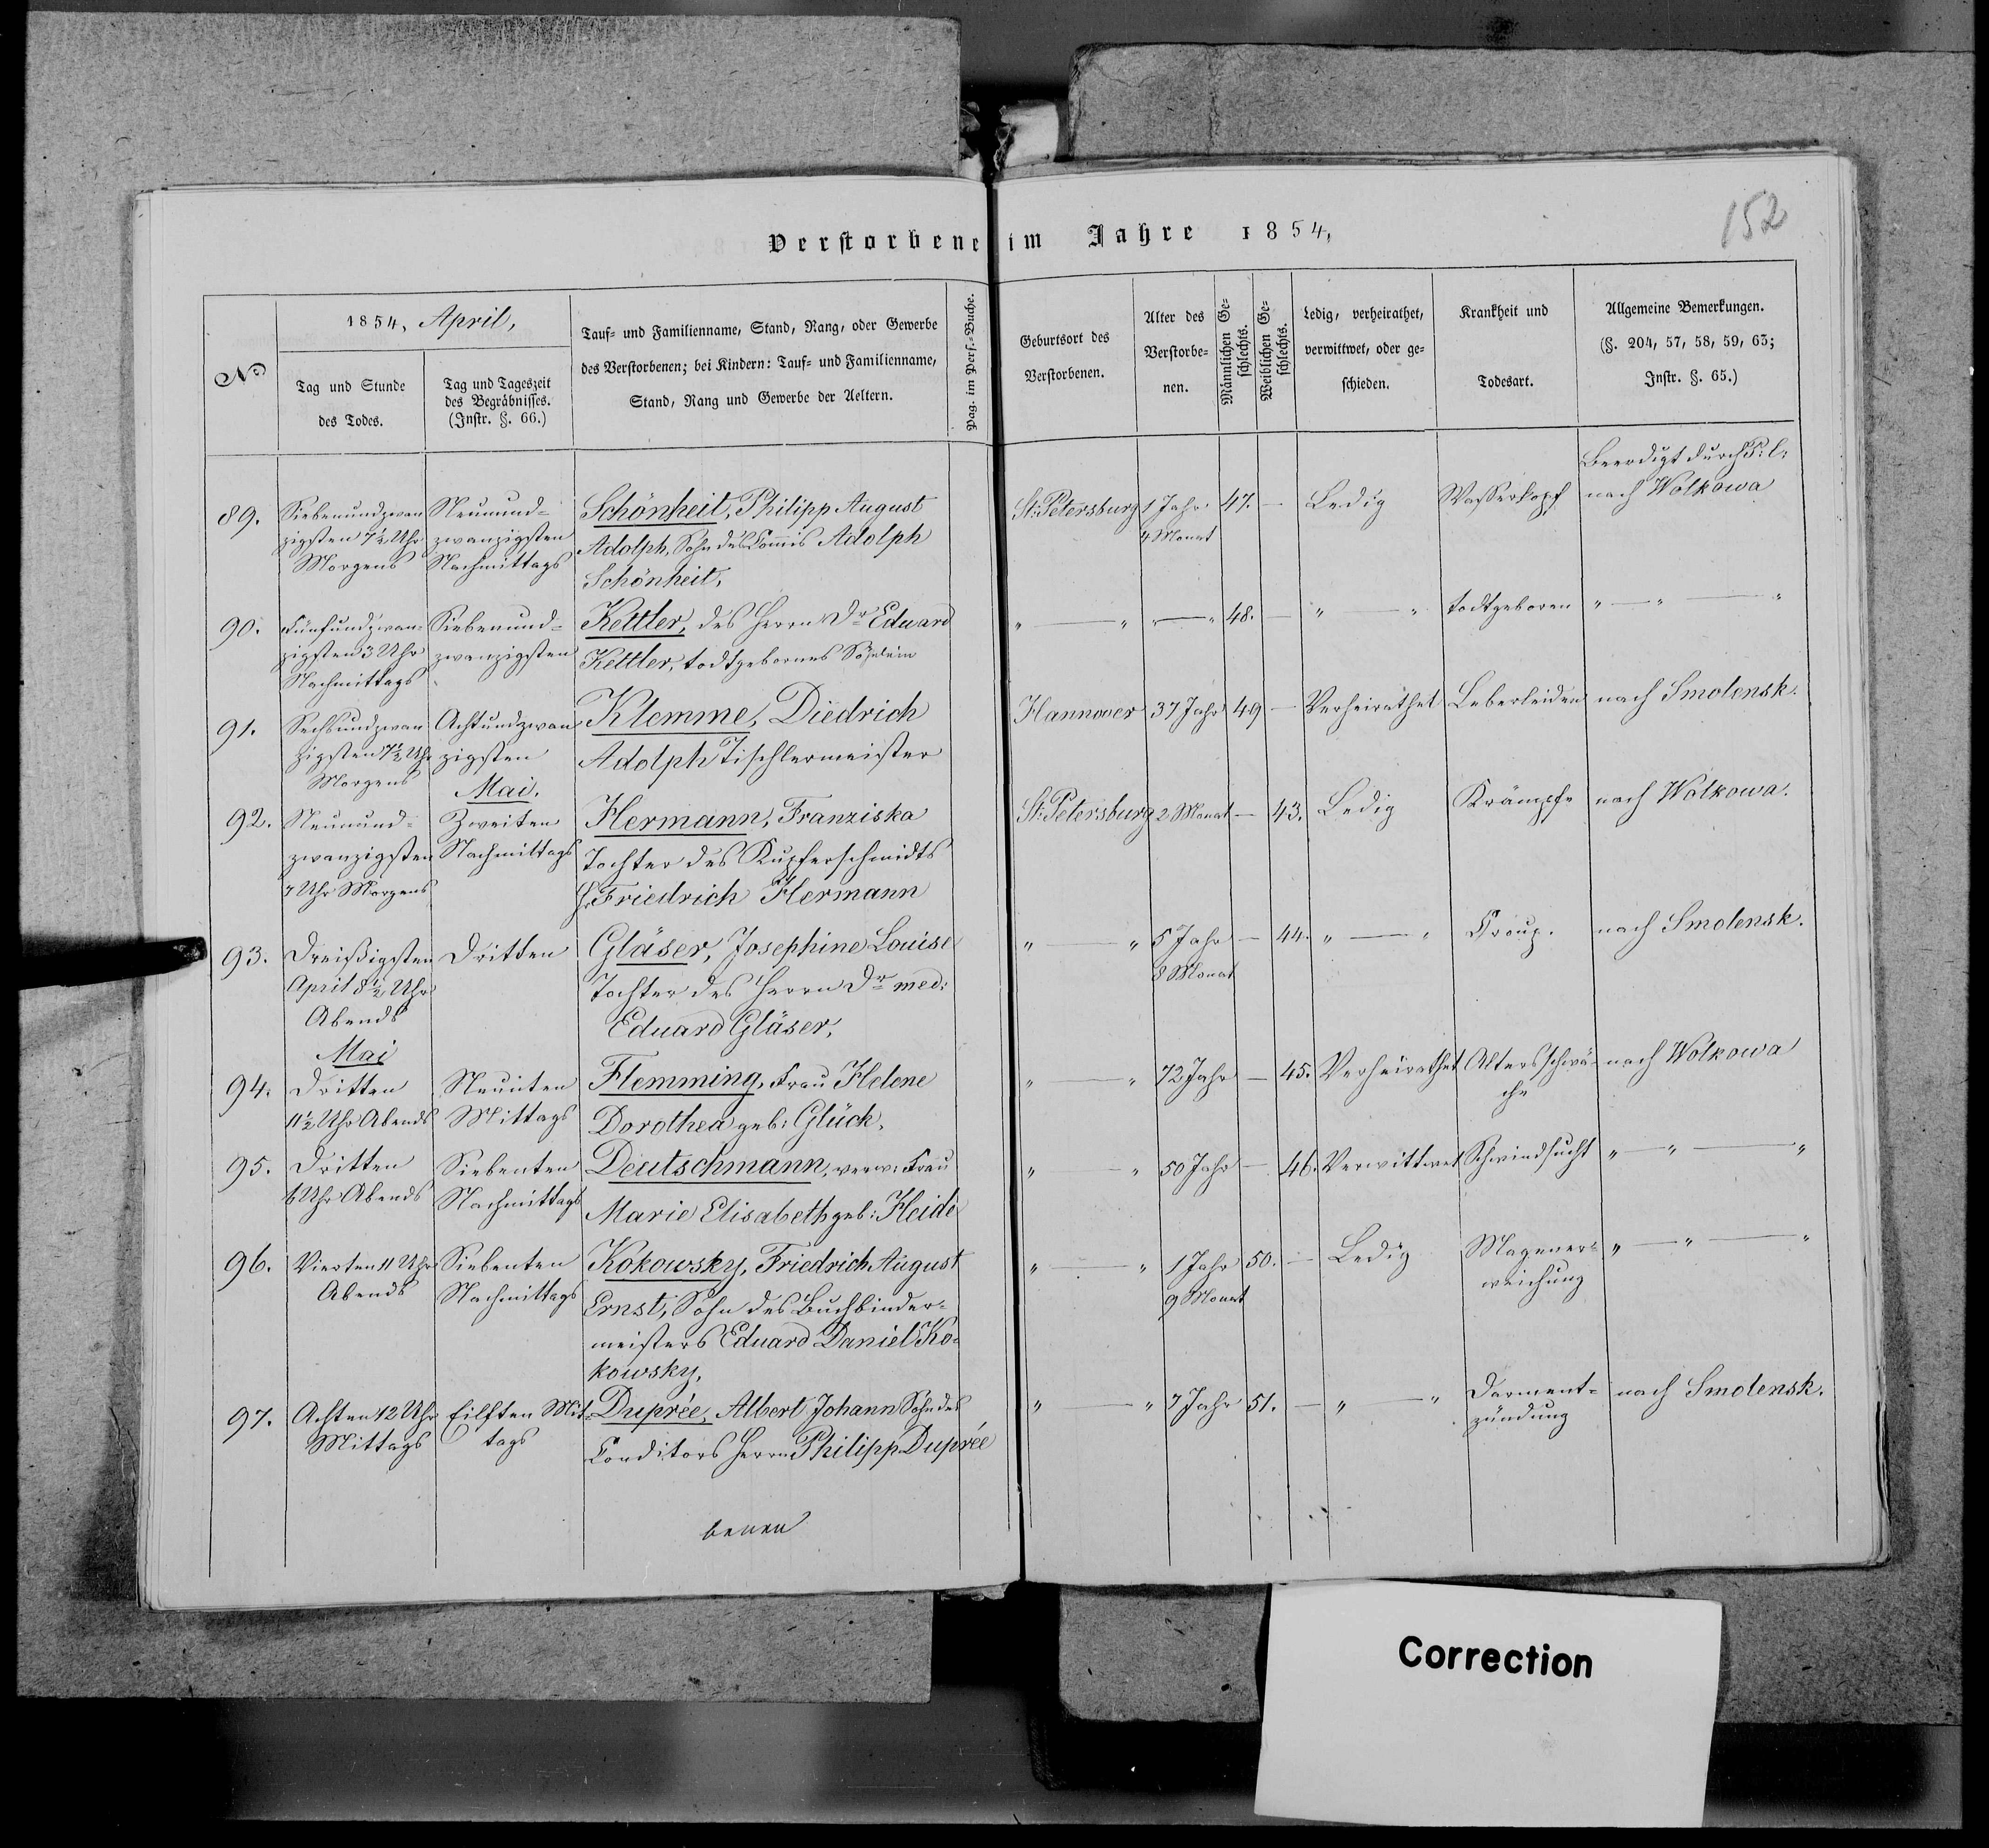 152
Verstorbene im Jahre 1854,
No
1854, April,
Tag und Stunde
des Todes.
Tag und Tageszeit
des Begräbnisses.
(Instr. §. 66.)
Tauf- und Familienname, Stand, Rang, oder Gewerbe
des Verstorbenen; bei Kindern: Tauf- und Familienname,
Stand, Rang und Gewerbe der Aeltern.
Pag. im Pers.-Buche.
Geburtsort des
Verstorbenen.
Alter des
Verstorbe-
nen.
Männlichen Ge-
schlechts.
Weiblichen Ge-
schlechts.
Ledig, verheirathet,
verwittwet, oder ge-
schieden.
Krankheit und
Todesart.
Allgemeine Bemerkungen.
(§. 204, 57, 58, 59, 63;
Instr. §. 65.)
89.
Siebenundzwan
zigsten 7½ Uhr
Morgens
Neunund-
zwanzigsten
Nachmittags
Schönheit, Philipp August
Adolph, Sohn des Commis Adolph
Schönheit,
St: Petersburg
1 Jahr
4 Monat
47. —
Ledig
Wasserkopf
Beerdigt durch
nach Wolkowa
90.
Fünfundzwan-
zigsten 3 Uhr
Nachmittags
Siebenund-
zwanzigsten
Kettler, des Herrn Dr Eduard
Kettler, todtgebornes Söhnlein
" — "
" — "
48. —
" — "
todtgeboren
" — " — "
91.
Sechsundzwan
zigsten 7½ Uhr
Morgens
Achtundzwan
zigsten
Klemme, Diedrich
Adolph Tischlermeister
Hannover
37 Jahr
49 —
Verheirathet
Leberleiden
nach Smolensk.
92.
Neunund-
zwanzigsten
7 Uhr Morgens
Mai.
Zweiten
Nachmittags
Hermann, Franziska
Tochter des Kupferschmidts
Friedrich Hermann
St: Petersburg
2 Monat
— 43.
Ledig
Krämpfe
nach Wolkowa.
93.
Dreißigsten
April 8½ Uhr
Abends
Dritten
Gläser, Josephine Louise
Tochter des Herrn Dr med:
Eduard Gläser,
" — "
5 Jahr
8 Monat
— 44.
" — "
Croup.
nach Smolensk.
94.
Mai
Dritten
11½ Uhr Abends
Neunten
Mittags
Flemming, Frau Helene
Dorothea geb: Glück,
" — "
72 Jahr
— 45.
Verheirathet
Altersschwä-
che
nach Wolkowa
95.
Dritten
6 Uhr Abends
Siebenten
Nachmittags
Deutschmann, verw: Frau
Marie Elisabeth geb: Heide
" — "
50 Jahr
— 46.
Verwittwet
Schwindsucht
" — " — "
96.
Vierten 11 Uhr
Abends
Siebenten
Nachmittags
Kokowsky, Friedrich August
Ernst, Sohn des Buchbinder-
meisters Eduard Daniel Ko-
kowsky,
" — "
1 Jahr
9 Monat
50. —
Ledig
Magener-
weichung
" — " — "
97.
Achten 12 Uhr
Mittags
Eilften Mit-
tags
Duprée, Albert Johann Sohn des
Conditors Herrn Philipp Duprée
" — "
7 Jahr
51. —
" — "
Darment-
zündung
nach Smolensk.
Correction